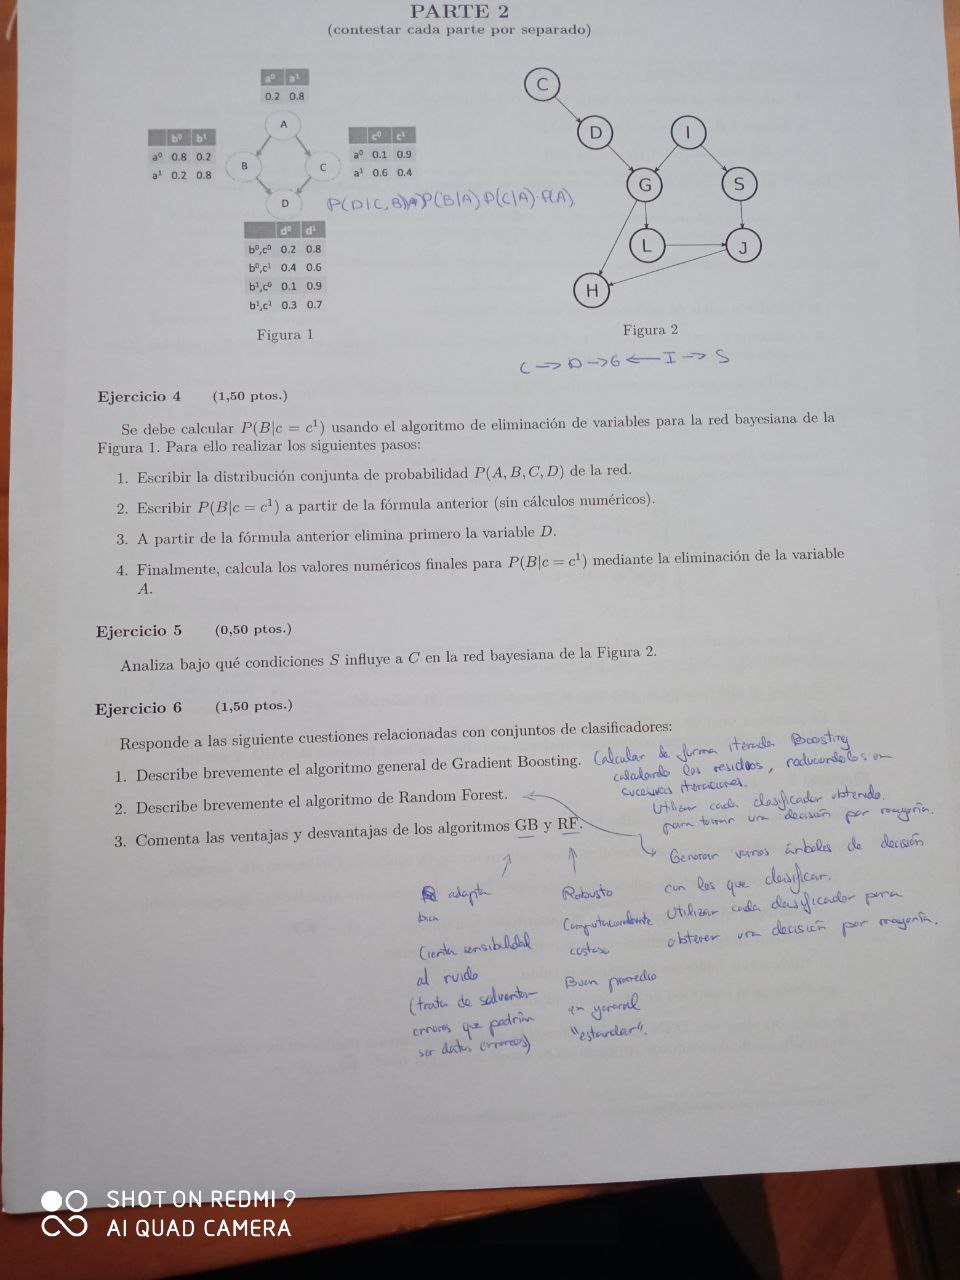 PARTE 2
(contestar cada parte por separado)
a⁰ a¹
0.2 0.8
A
b⁰ b¹
a⁰ 0.8 0.2
a¹ 0.2 0.8
B
C
c⁰ c¹
a⁰ 0.1 0.9
a¹ 0.6 0.4
D
P(D|C,B) P(B|A) P(C|A)·P(A)
d⁰ d¹
b⁰,c⁰ 0.2 0.8
b⁰,c¹ 0.4 0.6
b¹,c⁰ 0.1 0.9
b¹,c¹ 0.3 0.7
Figura 1
C
D
I
G
S
L
J
H
Figura 2
C → D → G ← I → S
Ejercicio 4 (1,50 ptos.)
Se debe calcular P(B|c = c¹) usando el algoritmo de eliminación de variables para la red bayesiana de la
Figura 1. Para ello realizar los siguientes pasos:
1. Escribir la distribución conjunta de probabilidad P(A, B, C, D) de la red.
2. Escribir P(B|c = c¹) a partir de la fórmula anterior (sin cálculos numéricos).
3. A partir de la fórmula anterior elimina primero la variable D.
4. Finalmente, calcula los valores numéricos finales para P(B|c = c¹) mediante la eliminación de la variable
A.
Ejercicio 5 (0,50 ptos.)
Analiza bajo qué condiciones S influye a C en la red bayesiana de la Figura 2.
Ejercicio 6 (1,50 ptos.)
Responde a las siguiente cuestiones relacionadas con conjuntos de clasificadores:
1. Describe brevemente el algoritmo general de Gradient Boosting.
2. Describe brevemente el algoritmo de Random Forest.
3. Comenta las ventajas y desvantajas de los algoritmos GB y RF.
Calcular de forma iterada Boosting
calculando los residuos, reduciendolos en
sucesivas iteraciones.
Utilizar cada clasificador obtenido.
para tomar una decisión por mayoría.
Generar varios árboles de decisión
con los que clasificar.
Utilizar cada clasificador para
obtener una decisión por mayoría.
adapta
bien
Cierta sensibilidad
al ruido
(trata de solventar
errores que podrían
ser datos erroneos)
Robusto
Computacionalmente
costoso
Buen promedio
en general
"estandar".
SHOT ON REDMI 9
AI QUAD CAMERA